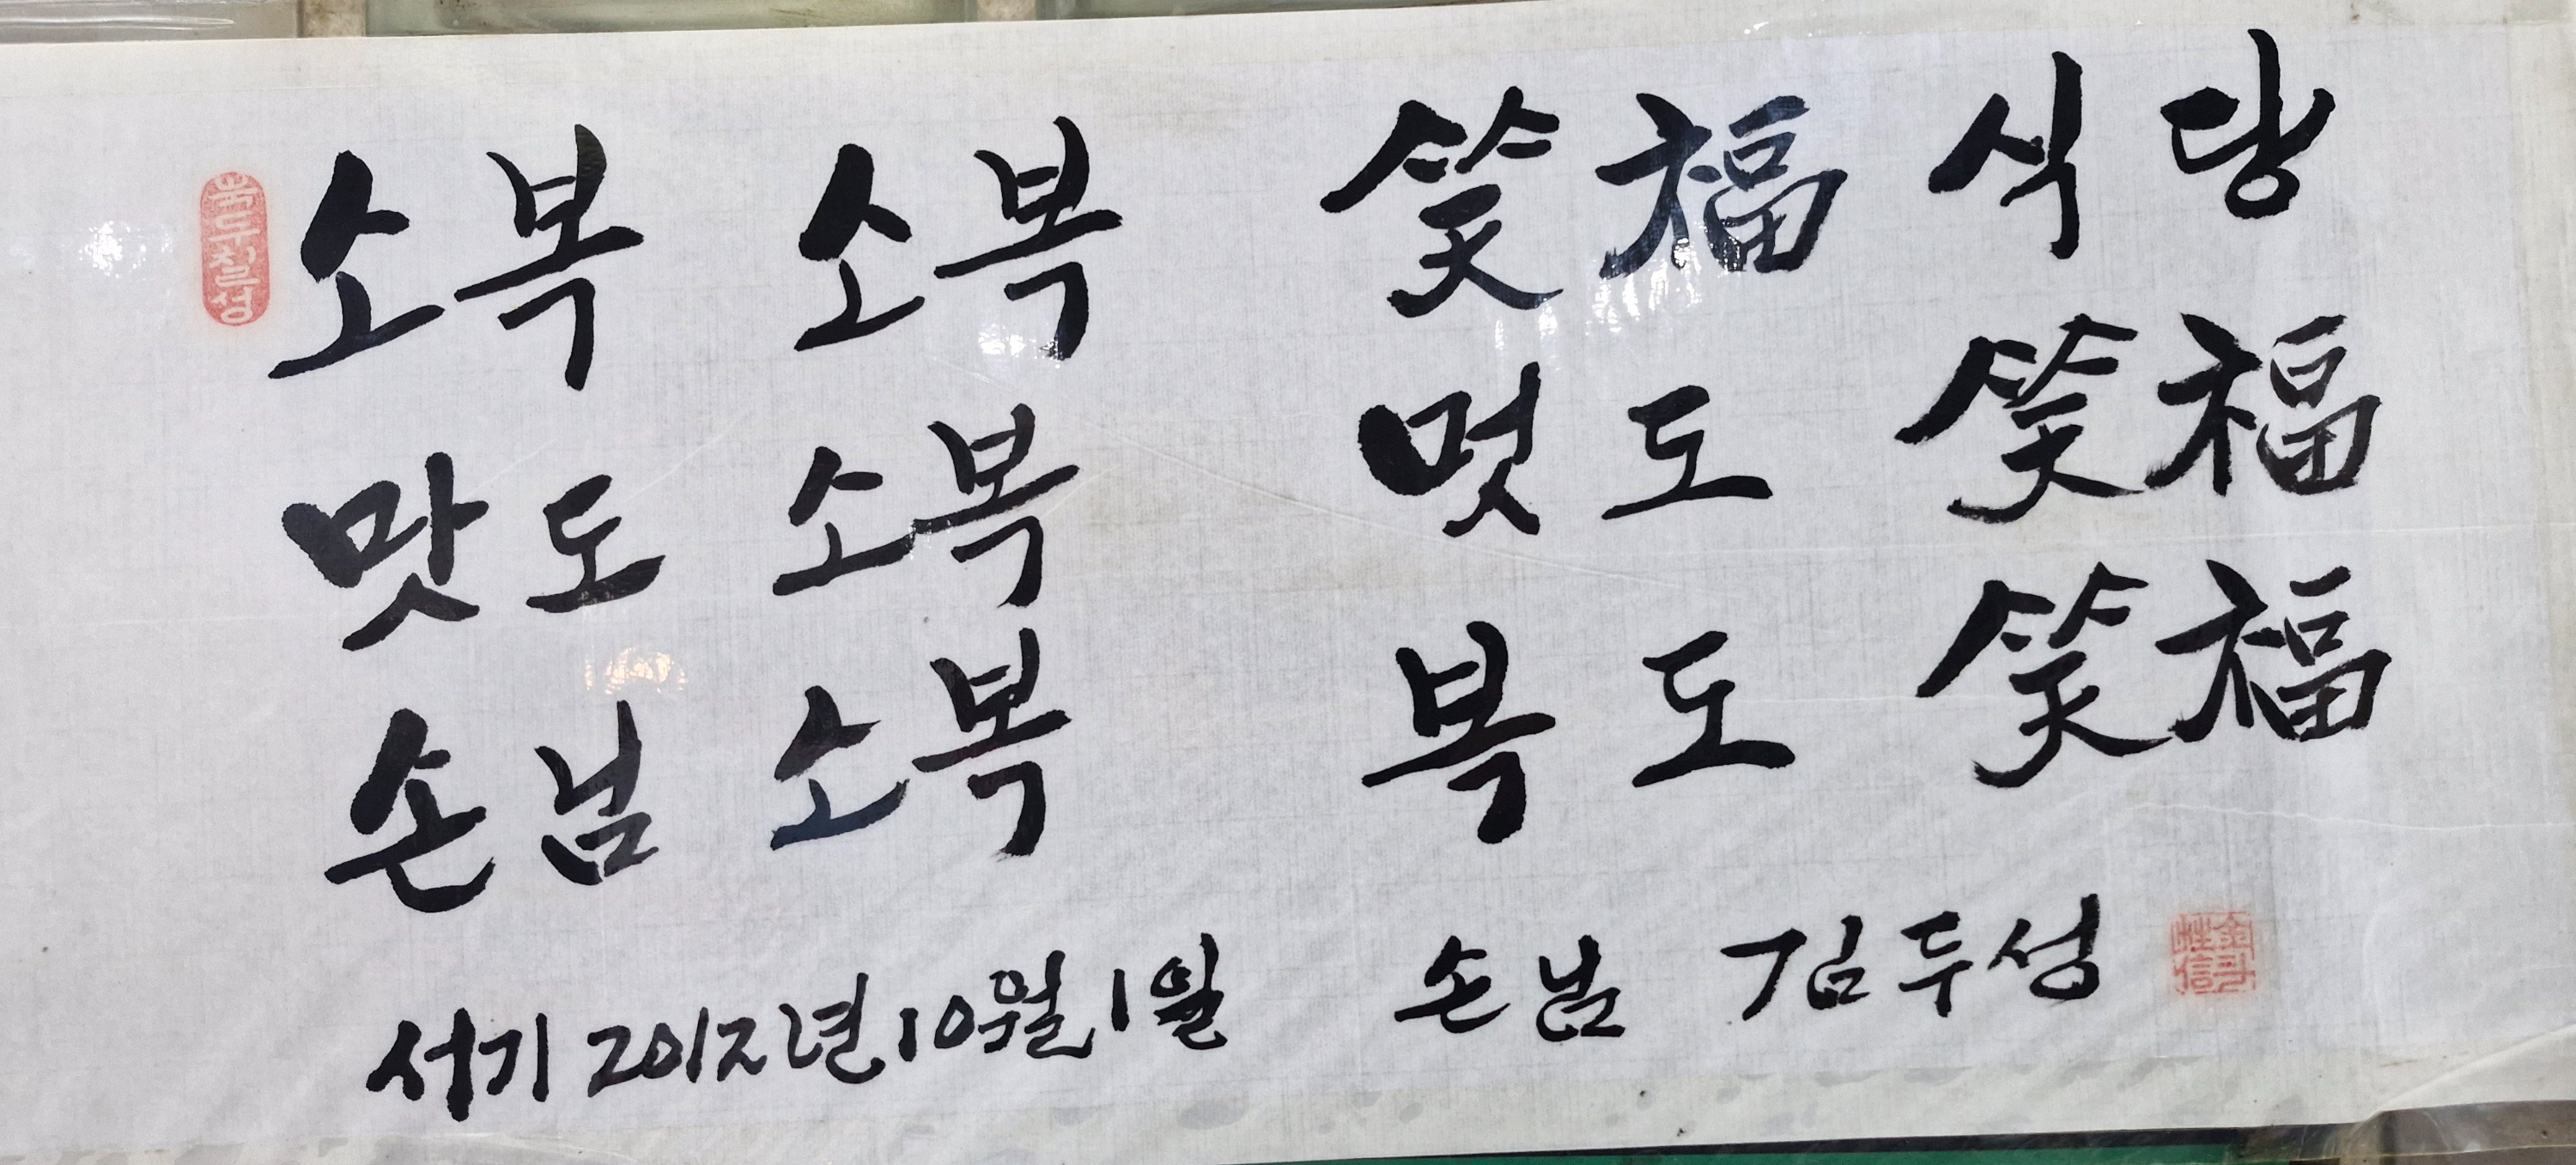 소복 소복 笑福 식당
맛도 소복 멋도 笑福
손님 소복 복도 笑福
서기 2012년 10월 1일 손님 김두성
북두칠성